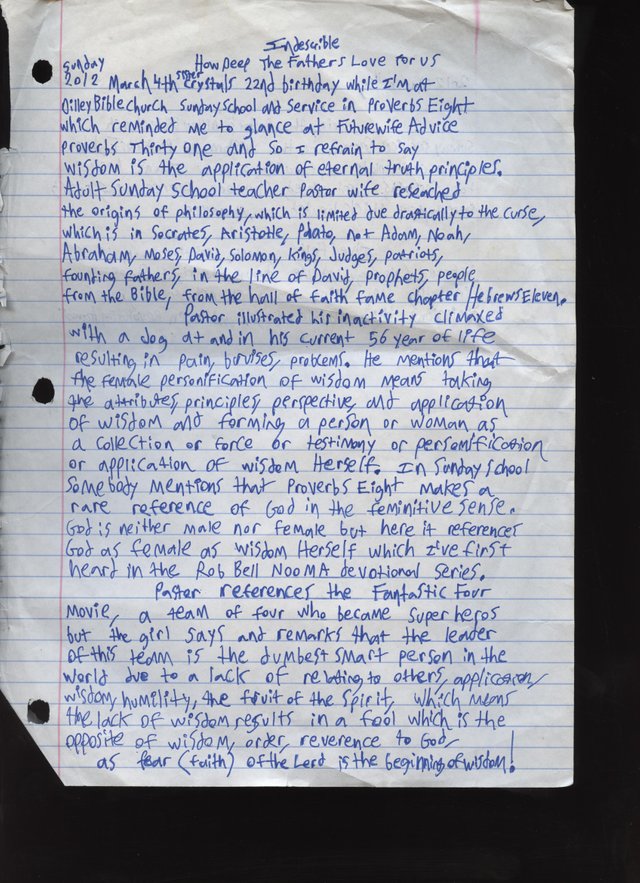 Indescrible
How Deep The Fathers Love for us
Sunday
2012 March 4th sister Crystals 22nd birthday while I'm at
Dilley Bible Church Sunday School and Service in Proverbs Eight
which reminded me to glance at Future wife Advice
Proverbs Thirty one and so I refrain to say
wisdom is the application of eternal truth principles.
Adult Sunday School teacher Pastor wife reseached
the origins of philosophy, which is limited due drastically to the curse,
which is in Socrates, Aristotle, Plato, not Adam, Noah,
Abraham, Moses, David, Solomon, Kings, Judges, patriots,
founding fathers, in the line of David, prophets, people
from the Bible, from the hall of faith fame chapter Hebrews Eleven.
Pastor illustrated his inactivity climaxed
with a dog at and in his current 56 year of life
resulting in pain, bruises, problems. He mentions that
the female personification of wisdom means taking
the attributes, principles, perspective, and application
of wisdom and forming a person or woman as
a collection or force or testimony or personification
or application of wisdom Herself. In Sunday School
Somebody mentions that Proverbs Eight makes a
rare reference of God in the feminitive sense.
God is neither male nor female but here it references
God as female as wisdom Herself which I've first
heard in the Rob Bell NooMA devotional series.
Pastor references the Fantastic Four
Movie, a team of four who became super heros
but the girl says and remarks that the leader
of this team is the dumbest smart person in the
world due to a lack of relating to others, application,
wisdom, humility, the fruit of the Spirit, which means
the lack of wisdom results in a fool which is the
opposite of wisdom, order, reverence to God,
as fear (faith) of the Lord is the beginning of wisdom!